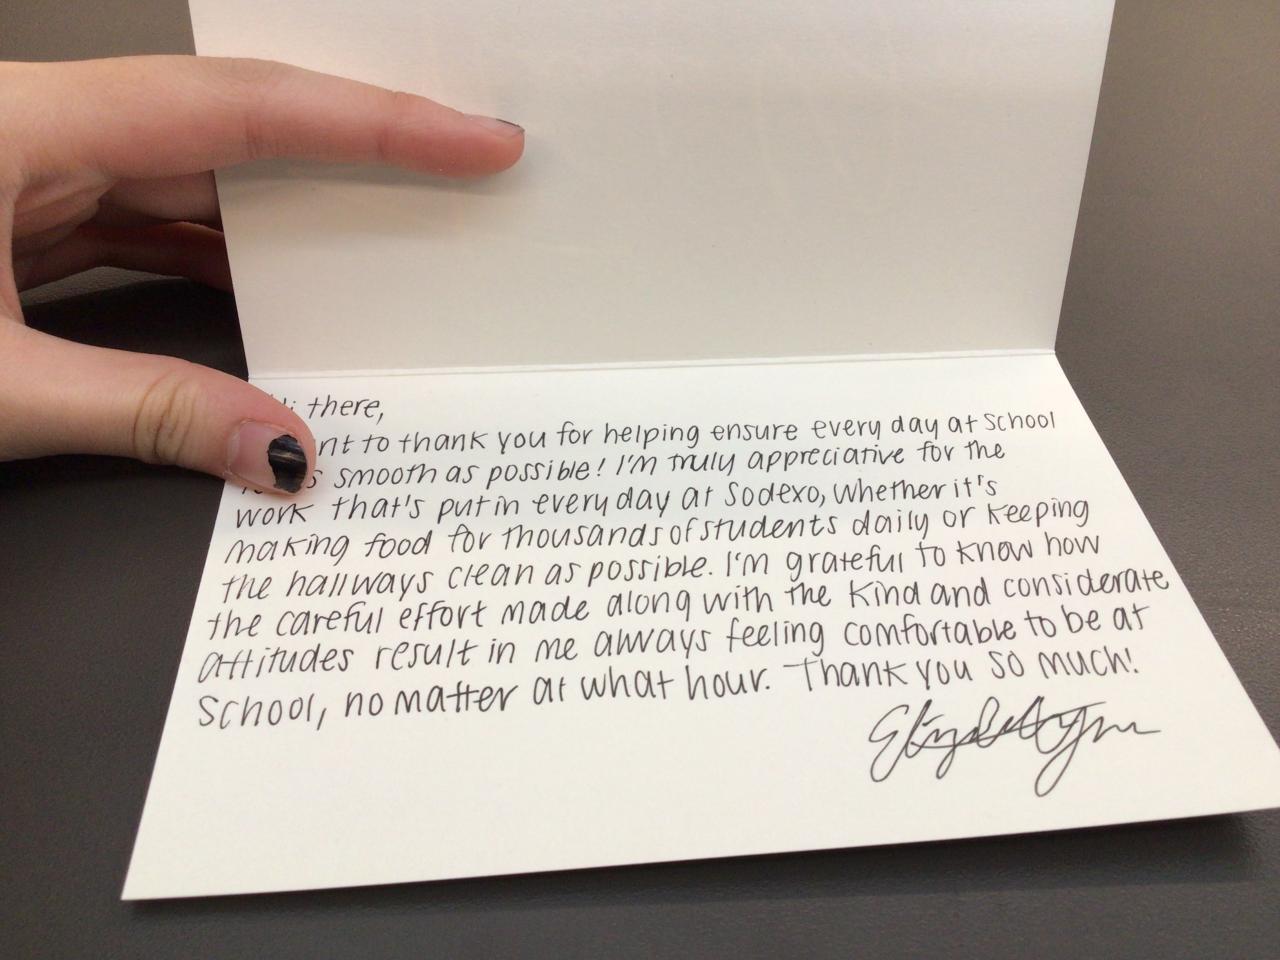 there,
to thank you for helping ensure every day at school
smooth as possible! I'm truly appreciative for the
work that's put in every day at Sodexo, whether it's
making food for thousands of students daily or keeping
the hallways clean as possible. I'm grateful to know how
the careful effort made along with the kind and considerate
attitudes result in me always feeling comfortable to be at
school, no matter at what hour. Thank you so much!